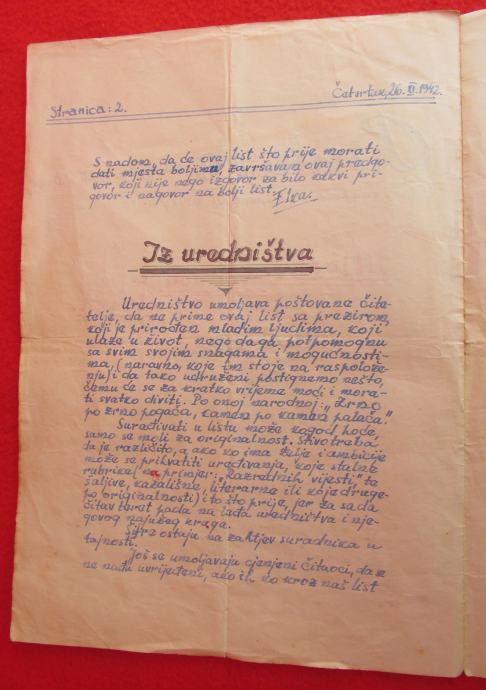 Četvrtak, 26. XI. 1942.
Stranica: 2.
S nadom, da će ovaj list što prije morati
dati mjesta boljimu, završavam ovaj predgo-
vor, koji nije nego izgovor za bilo kakvi pri-
govor i nagovor na bolji list.
Iz uredništva
Uredništvo umoljava poštovane čita-
telje, da ne prime ovaj list sa prezirom,
koji je prirođen mladim ljudima, koji
ulaze u život, nego da ga potpomognu
sa svim svojim snagama i mogućnosti-
ma, (naravno, koje im stoje na raspolože-
nju) i da tako udruženi postignemo nešto,
čemu će se za kratko vrijeme moći i mora-
ti svatko diviti. Po onoj narodnoj: „Zrno
po zrno pogača, kamen po kamen palača."
Surađivati u listu može kogod hoće,
samo se moli za originalnost. Štivo treba
da je različito, a ako ko ima želje i ambicije
može se prihvatiti uređivanja, koje stalne
rubrike (na primjer: „Razrednih vijesti", te
šaljive, kazališne, literarne ili koje druge-
po originalnosti) i to što prije, jer za sada
čitav teret pada na leđa uredništva i nje-
govog najužeg kruga.
ostaju na zahtjev suradnika u
tajnosti.
Još se umoljavaju cjenjeni čitaoci, da se
ne nađu uvrijeđeni, ako ih ko kroz naš list